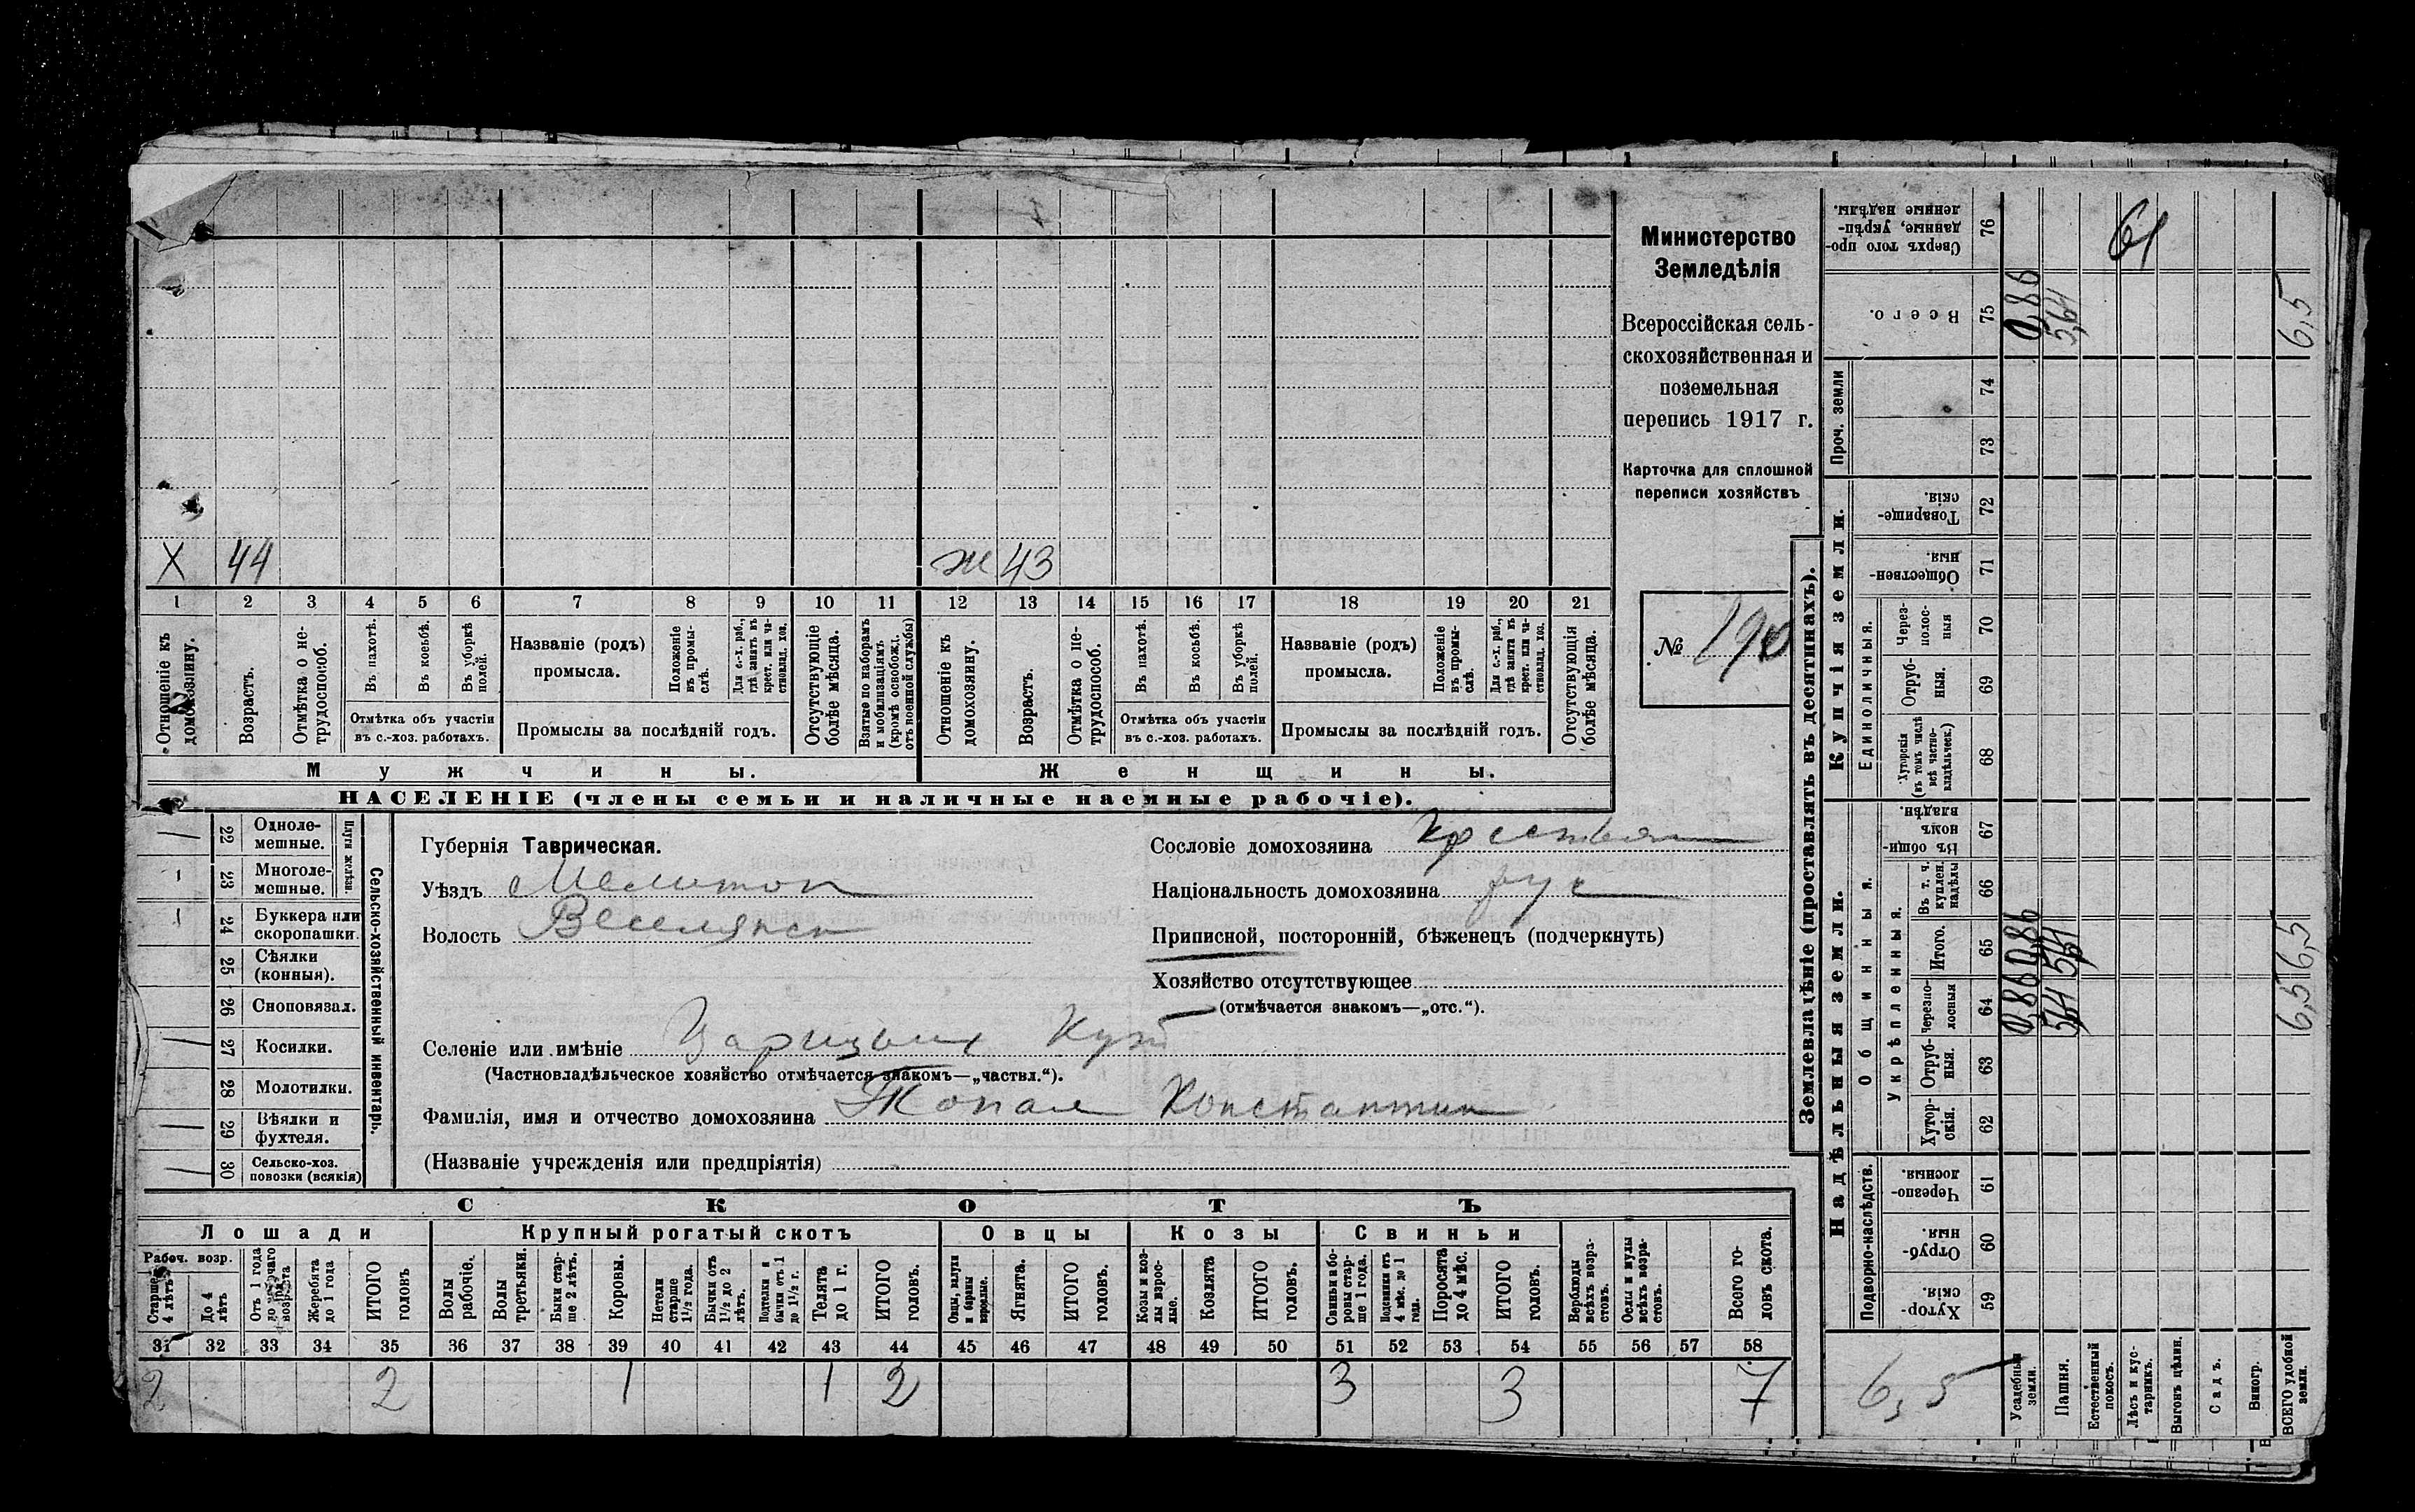 Министерство
Земледѣлія
Всероссійская сель-
скохозяйственная и
поземельная
перепись 1917 г.
Карточка для сплошной
переписи хозяйствъ
№ 190
X 44 ж 43
1 2 3 4 5 6 7 8 9 10 11 12 13 14 15 16 17 18 19 20 21
Отношеніе къ домохозяину.
Возрастъ.
Отмѣтка о не-трудоспособ.
Въ пахотѣ.
Въ косьбѣ.
Въ уборкѣ полей.
Отмѣтка объ участіи
въ с.-хоз. работахъ.
Названіе (родъ)
промысла.
Положеніе въ промы-слѣ.
Для с.-х. раб., гдѣ занятъ въ крест. или ча-стновлад. хоз.
Промыслы за послѣдній годъ.
Отсутствующіе болѣе мѣсяца.
Взятые по наборамъ и мобилизаціямъ (кромѣ освобожд. отъ военной службы)
Отношеніе къ домохозяину.
Возрастъ.
Отмѣтка о не-трудоспособ.
Въ пахотѣ.
Въ косьбѣ.
Въ уборкѣ полей.
Отмѣтка объ участіи
въ с.-хоз. работахъ.
Названіе (родъ)
промысла.
Положеніе въ промы-слѣ.
Для с.-х. раб., гдѣ занята въ крест. или ча-стновлад. хоз.
Промыслы за послѣдній годъ.
Отсутствующія болѣе мѣсяца.
Мужчины. Женщины.
НАСЕЛЕНІЕ (члены семьи и наличные наемные рабочіе).
Сельско-хозяйственный инвентарь.
Плуги желѣзн.
22 Одноле-мешные.
23 Многоле-мешные. 1
24 Буккера или скоропашки. 1
25 Сѣялки (конныя).
26 Сноповязал.
27 Косилки.
28 Молотилки.
29 Вѣялки и фухтеля.
30 Сельско-хоз. повозки (всякія)
Губернія Таврическая.
Уѣздъ Мелитоп
Волость Веселянск
Сословіе домохозяина крестьян
Національность домохозяина рус
Приписной, посторонній, бѣженецъ (подчеркнуть)
Хозяйство отсутствующее
(отмѣчается знакомъ—„отс.“).
Селеніе или имѣніе Царицын Кут
(Частновладѣльческое хозяйство отмѣчается знакомъ—„частвл.“).
Фамилія, имя и отчество домохозяина Топал Константин
(Названіе учрежденія или предпріятія)
СКОТЪ
Лошади Крупный рогатый скотъ Овцы Козы Свиньи
Рабоч. возр.
Старше 4 лѣтъ
До 4 лѣтъ
Отъ 1 года до рабочаго возраста
Жеребята до 1 года
ИТОГО головъ
Волы рабочіе.
Волы третьяки.
Быки стар-ше 2 лѣтъ.
Коровы.
Нетели старше 1½ года.
Бычки отъ 1½ до 2 лѣтъ.
Подтелки и бычки отъ 1 до 1½ г.
Телята до 1 г.
ИТОГО головъ.
Овцы, валухи и бараны взрослые.
Ягнята.
ИТОГО головъ.
Козы и коз-лы взрос-лые.
Козлята
ИТОГО головъ.
Свиньи и бо-ровы стар-ше 1 года.
Подсвинки отъ 4 мѣс. до 1 года.
Поросята до 4 мѣс.
ИТОГО головъ.
Верблюды всѣхъ возра-стовъ.
Ослы и мулы всѣхъ возра-стовъ.
Всего го-ловъ скота.
31 32 33 34 35 36 37 38 39 40 41 42 43 44 45 46 47 48 49 50 51 52 53 54 55 56 57 58
2 2 1 1 2 3 3 7
Землевладѣніе (проставлять въ десятинахъ).
Надѣльныя земли. Купчія земли. Проч. земли
Подворно-наслѣдств. Общинныя. Укрѣпленныя. Единоличныя.
Хутор-скія. 59
Отруб-ныя. 60
Черезпо-лосныя. 61
Хутор-скія. 62
Отруб-ныя. 63
Черезпо-лосныя 64
Итого. 65
Въ т. ч. куплен. надѣлы 66
Въ общин-номъ владѣн. 67
Хуторскія (въ томъ числѣ всѣ частно-владѣльческ.) 68
Отруб-ныя. 69
Через-полос-ныя 70
Обществен-ныя. 71
Товарище-скія. 72
73
74
Всего. 75
Сверхъ того про-данные, укрѣп-ленные надѣлы. 76
6,5
Усадебныя земли. 0,86 0,86 0,86
Пашня. 5,64 5,64 5,64
Естественный покосъ.
Лѣсъ и кус-тарникъ.
Выгонъ цѣлин.
Садъ.
Виногр.
ВСЕГО удобной земли. 6,5 6,5 6,5
61